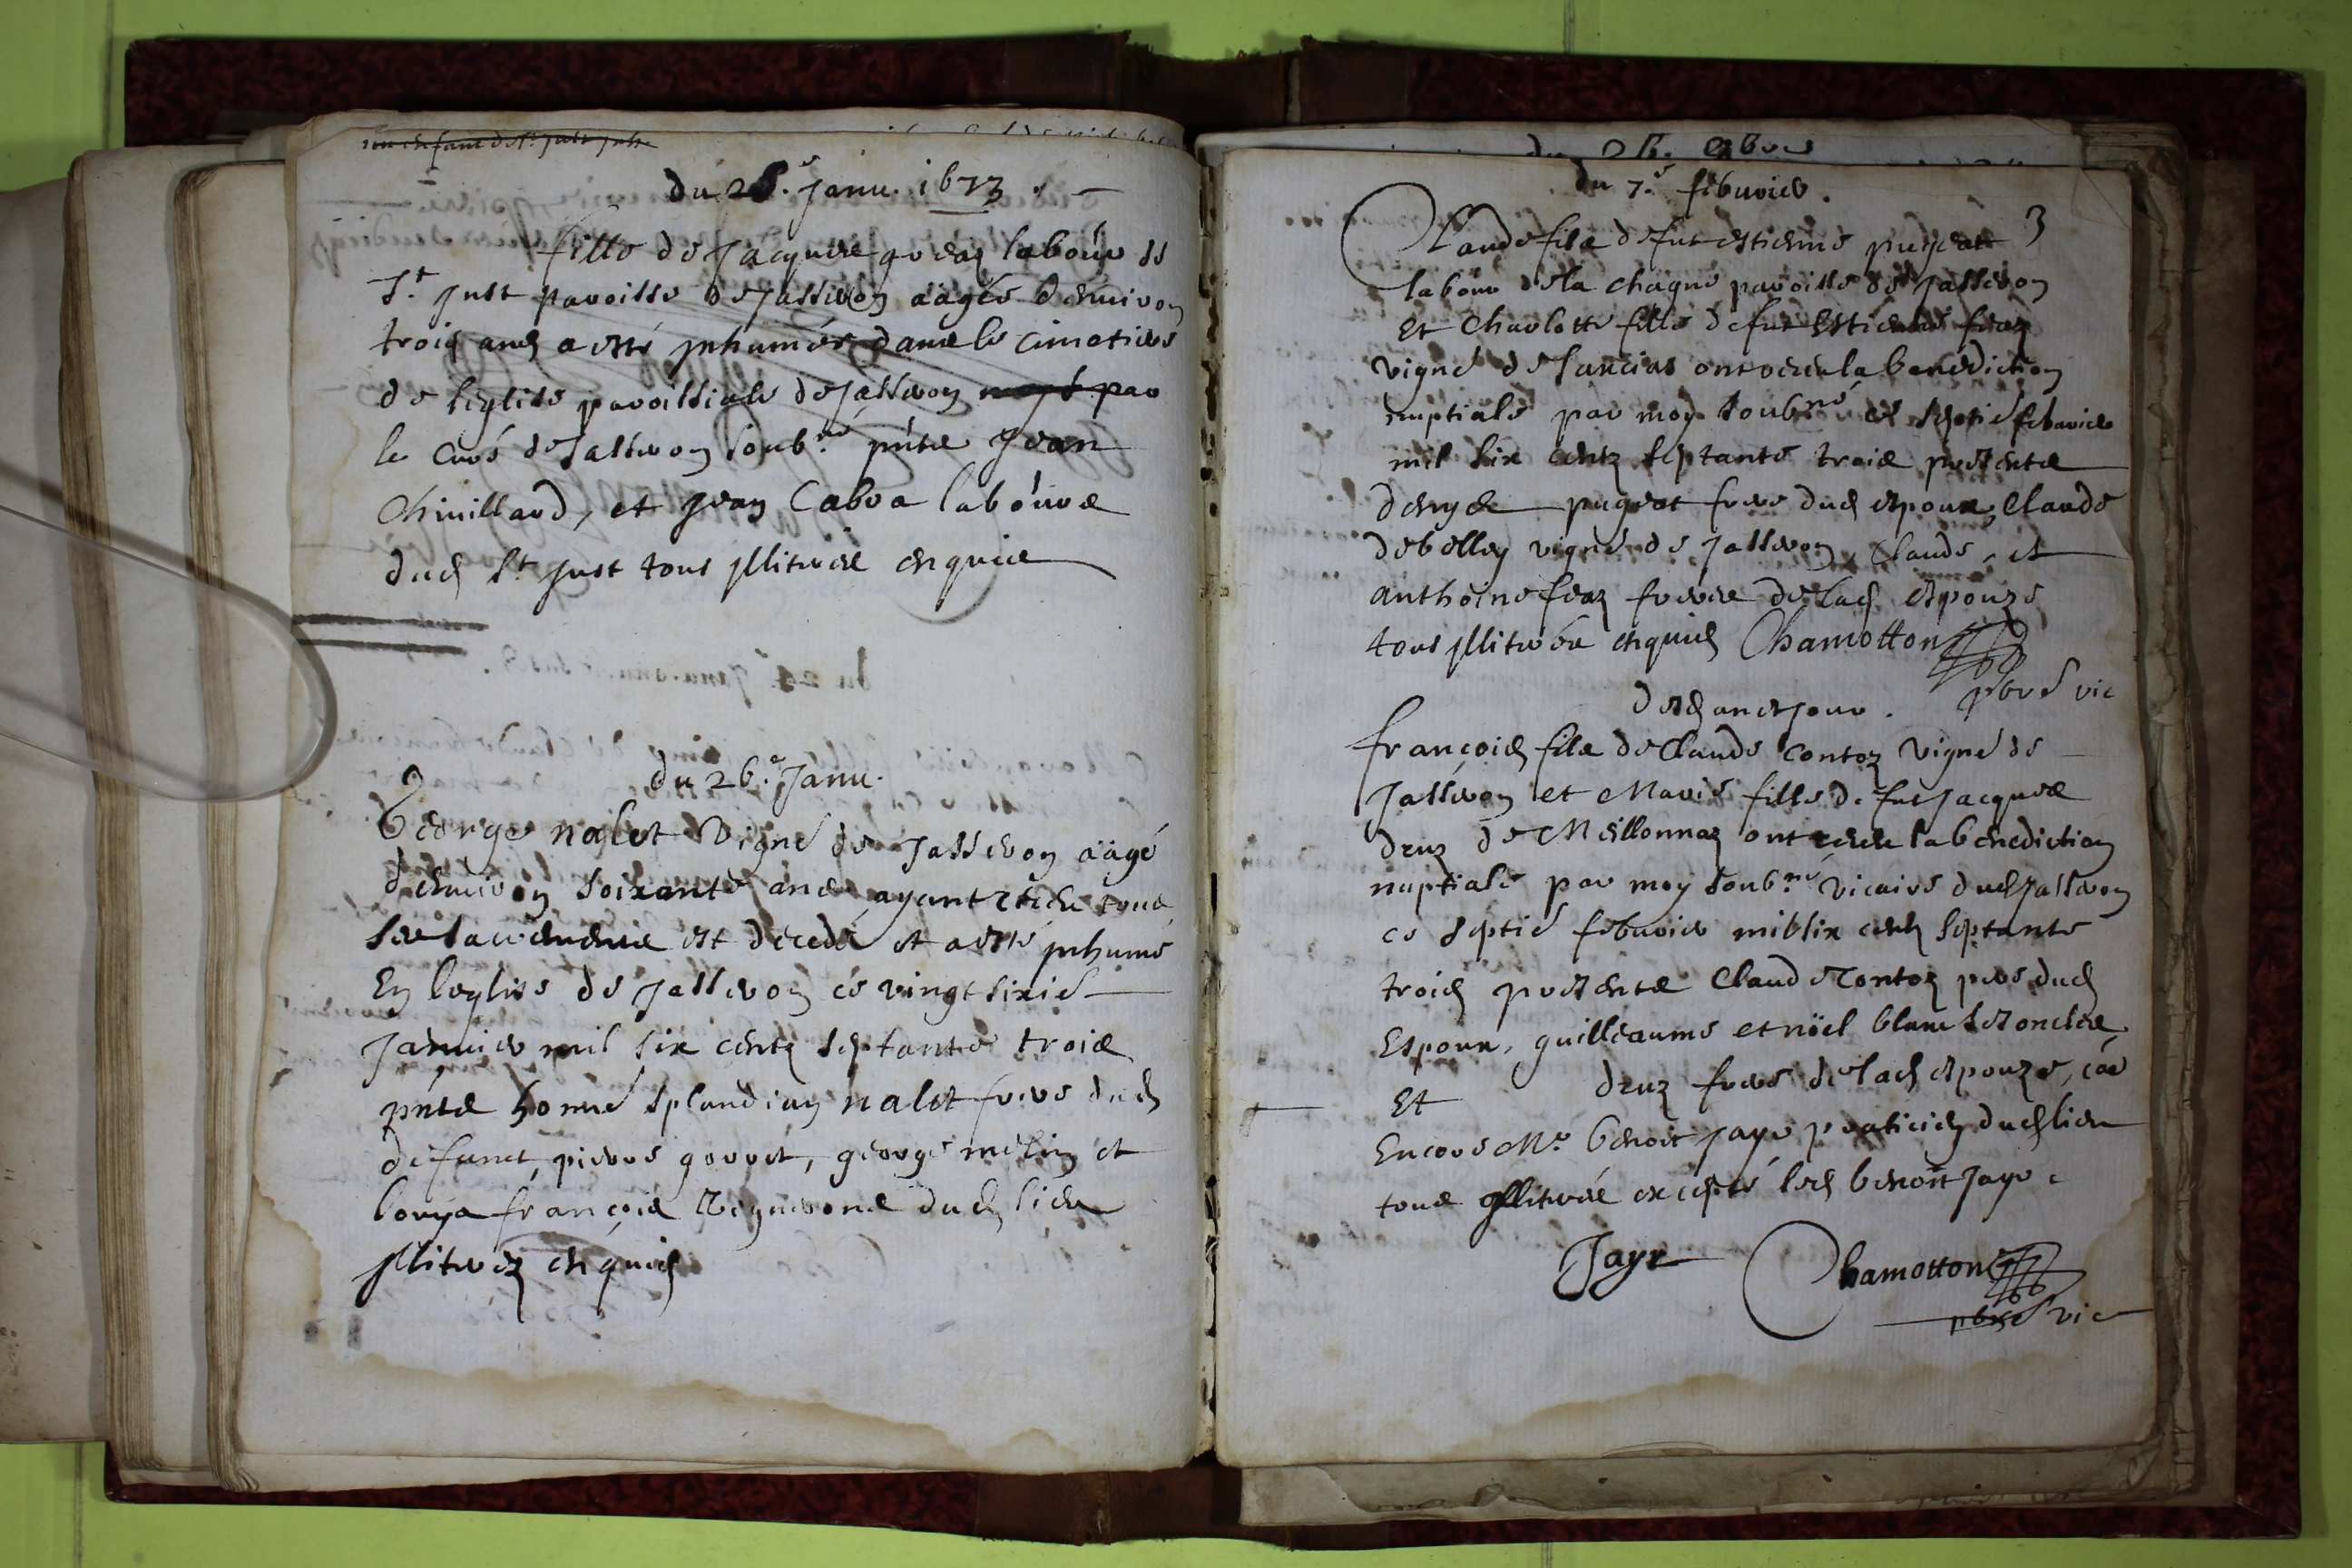 du 25.e Janu. 1673.
fille de Jacques labour de
St Just paroisse de Jasseron aagée denviron
trois ans a esté Inhumée dans le cimetiere
de leglise parroissiale de Jasseron par
le curé de Jasseron soub.né pnts Jean
Chivillard, et Jean Cabra labours
dud St Just tous Illiteres enquis
du 26.e Janu.
George nalet vigné de Jasseron aagé
denviron soixante ans ayant receu tous
ses sacremens est decedé et a esté Inhumé
En leglise de Jasseron ce vingt sixié
Janvier mil six centz septante trois
pnts honné nalet frere dud
defunct, pierre gorret, george melin et
louys françois vignerons dud lieu
Illiterez enquis
du 7.e febvrier.
3
Claude filz de fut estienne pugeat
labour de la chagne paroisse de Jasseron
Et Charlotte fille de fut Estienne feaz
vigné de Sancias ont receu la benediction
nuptiale par moy soubné ce septié febvrier
mil six centz septante trois presents
denys pugeat frere dud espoux, Claude
debelley vigné de Jasseron, Claude, et
anthoine feaz freres de lad espouze
tous Illiterés enquis Chamotton
pbre vic
desd an et jour.
françois filz de Claude contoz vigné de
Jasseron et Marie fille de fut Jacques
druz de Meillonnaz ont receu la benediction
nuptiale par moy soub.né vicaire dud Jasseron
ce septié febvrier mil six centz septante
trois presents Claude Contoz pere dud
Espoux, guilleaume et noël blanc ses oncles
Et druz frere de lad espouze,
Encore Mr. benoit Jayr praticien dud lieu
tous Illiterés excepté led benoit Jayr.
Jayr Chamotton
pbre vic